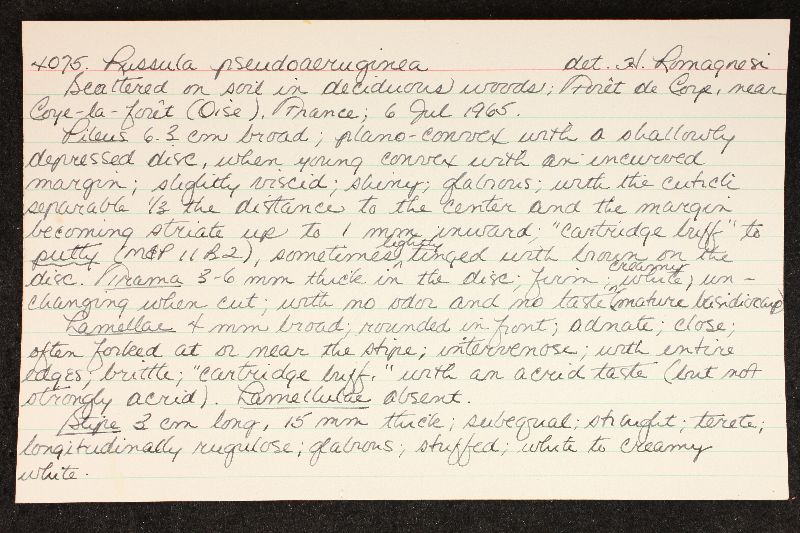 4075. Russula pseudoaeruginea det. H. Romagnesi
Scattered on soil in deciduous woods; Forêt de Coye, near
Coye-la-forêt (Oise), France; 6 Jul 1965.
Pileus 6.3 cm broad; plano-convex with a shallowly
depressed disc, when young convex with an incurved
margin; slightly viscid; shiny; glabrous; with the cuticle
separable 1/3 the distance to the center and the margin
becoming striate up to 1 mm inward; "cartridge buff" to
putty (M&P 11B2), sometimes lightly tinged with brown on the
disc. Trama 3-6 mm thick in the disc; firm; creamy white; un-
changing when cut; with no odor and no taste (in mature basidiocarp)
Lamellae 4 mm broad; rounded in front; adnate; close;
often forked at or near the stipe; intervenose; with entire
edges; brittle; "cartridge buff," with an acrid taste (but not
strongly acrid). Lamellulae absent.
Stipe 3 cm long, 15 mm thick; subequal; straight; terete;
longitudinally rugulose; glabrous; stuffed; white to creamy
white.